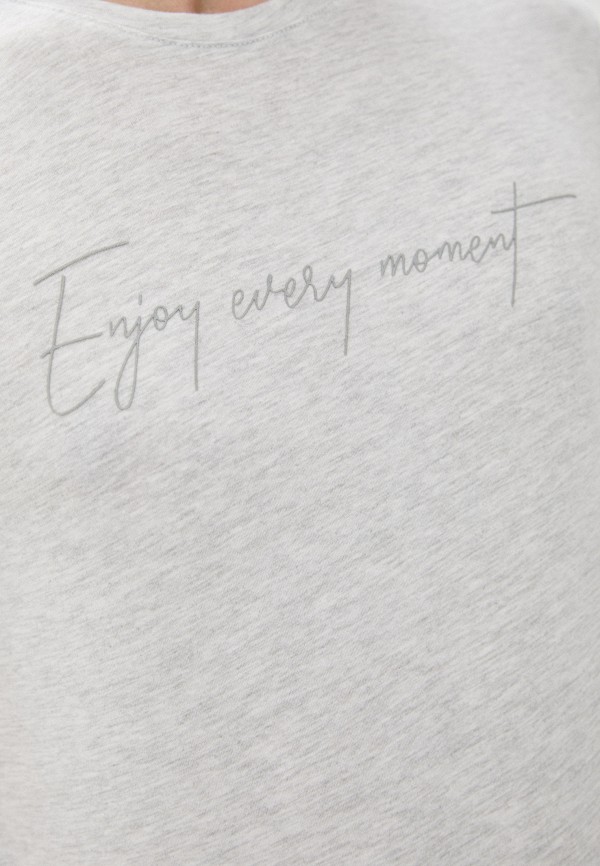 Enjoy every moment